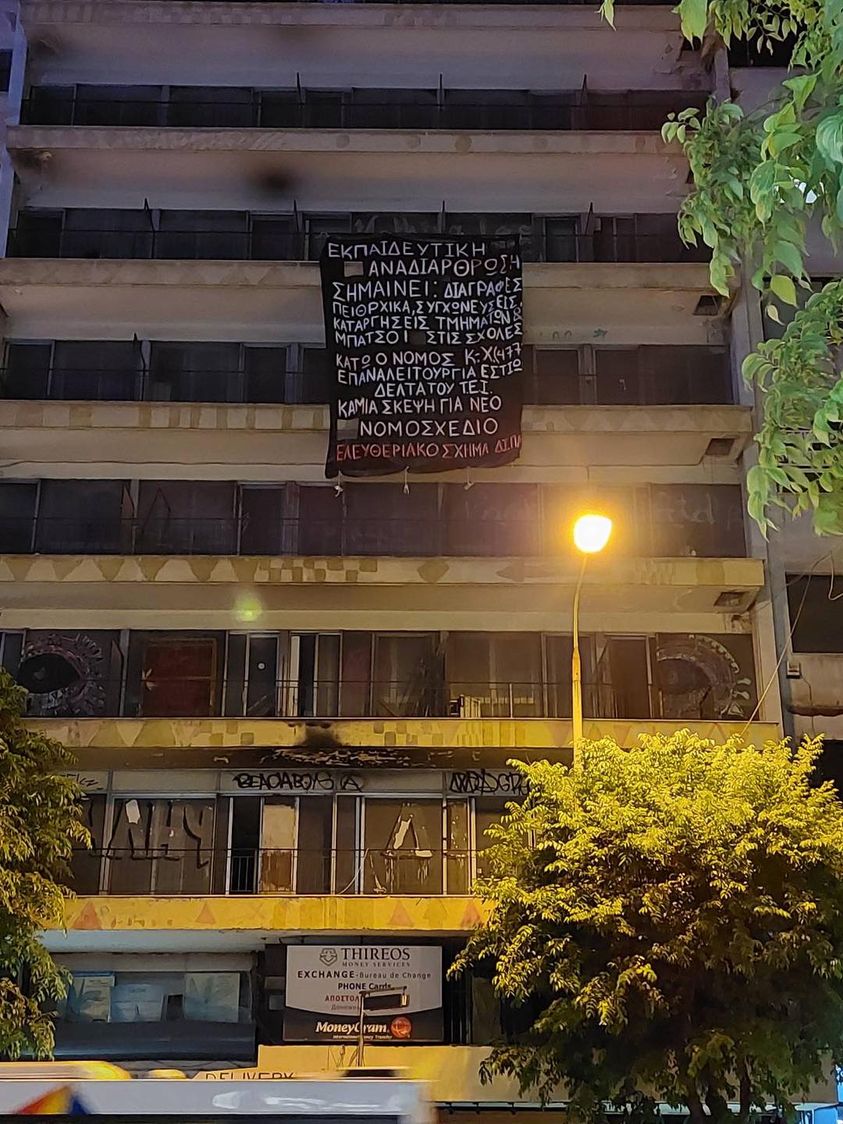 ΕΚΠΑΙΔΕΥΤΙΚΗ
ΑΝΑΔΙΑΡΘΡΩΣΗ
ΣΗΜΑΙΝΕΙ: ΔΙΑΓΡΑΦΕΣ
ΠΕΙΘΡΧΙΚΑ, ΣΥΓΧΩΝΕΥΣΕΙΣ,
ΚΑΤΑΡΓΗΣΕΙΣ ΤΜΗΜΑΤΩΝ &
ΜΠΑΤΣΟΙ ΣΤΙΣ ΣΧΟΛΕΣ
ΚΑΤΩ Ο ΝΟΜΟΣ Κ-Χ(477
ΕΠΑΝΑΛΕΙΤΟΥΡΓΙΑ ΕΣΤΙΩ
ΔΕΛΤΑ ΤΟΥ ΤΕΙ.
ΚΑΜΙΑ ΣΚΕΨΗ ΓΙΑ ΝΕΟ
ΝΟΜΟΣΧΕΔΙΟ
ΕΛΕΥΘΕΡΙΑΚΟ ΣΧΗΜΑ ΔΙ.ΠΑ
WHY
THIREOS
MONEY SERVICES
EXCHANGE-Bureau de Change
PHONE Cards
ΑΠΟΣΤΟΛ
MoneyGram
International Money Transfer
DELIVERY